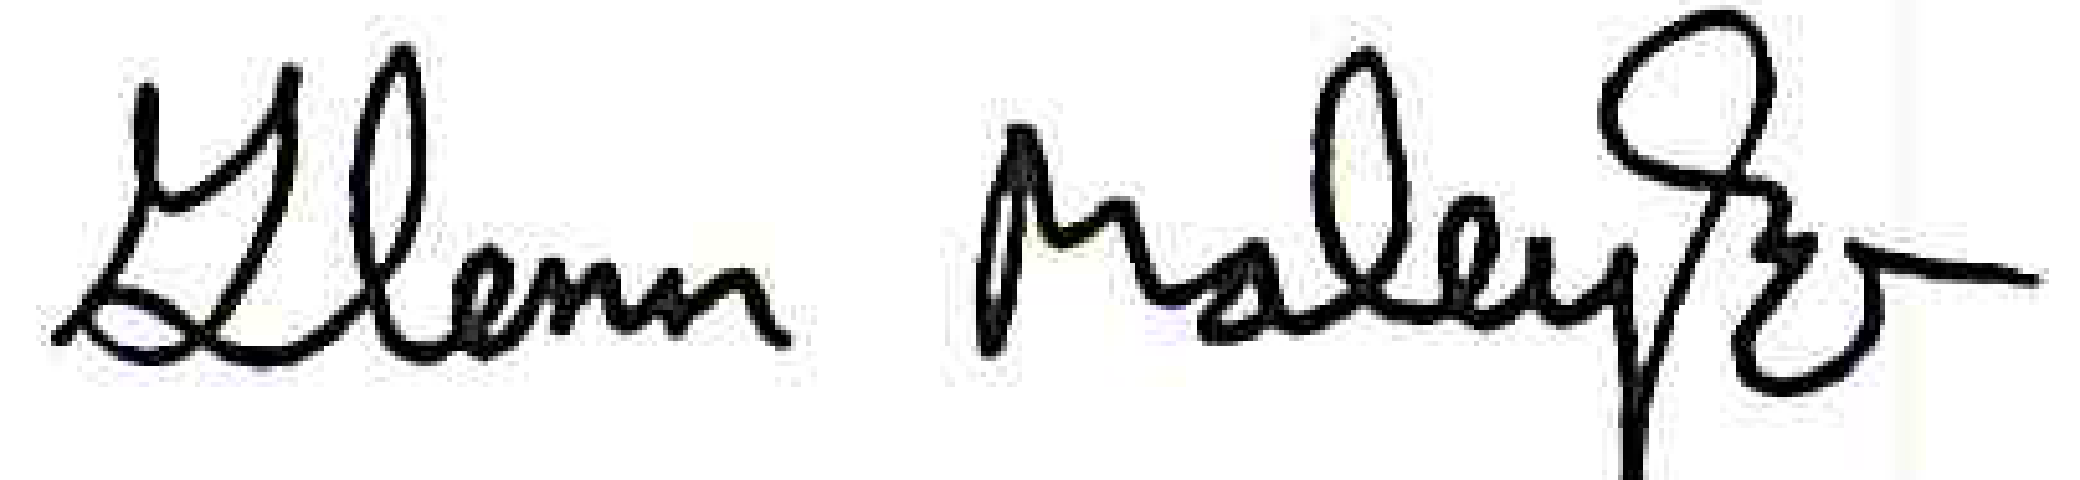 Glenn Maleyko